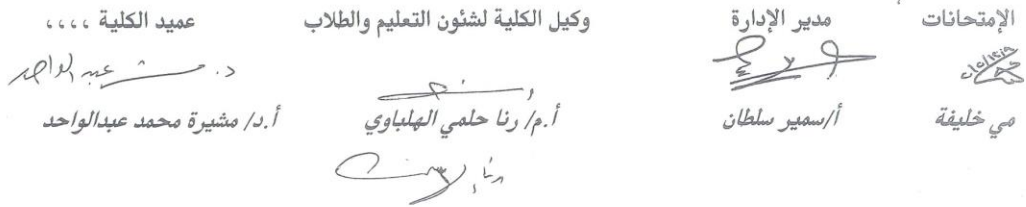 الإمتحانات مدير الإدارة وكيل الكلية لشئون التعليم والطلاب عميد الكلية ،،،،
د. عبد الواحد
مي خليفة أ/سمير سلطان أ.م/ رنا حلمي الهلباوي أ.د/ مشيرة محمد عبدالواحد